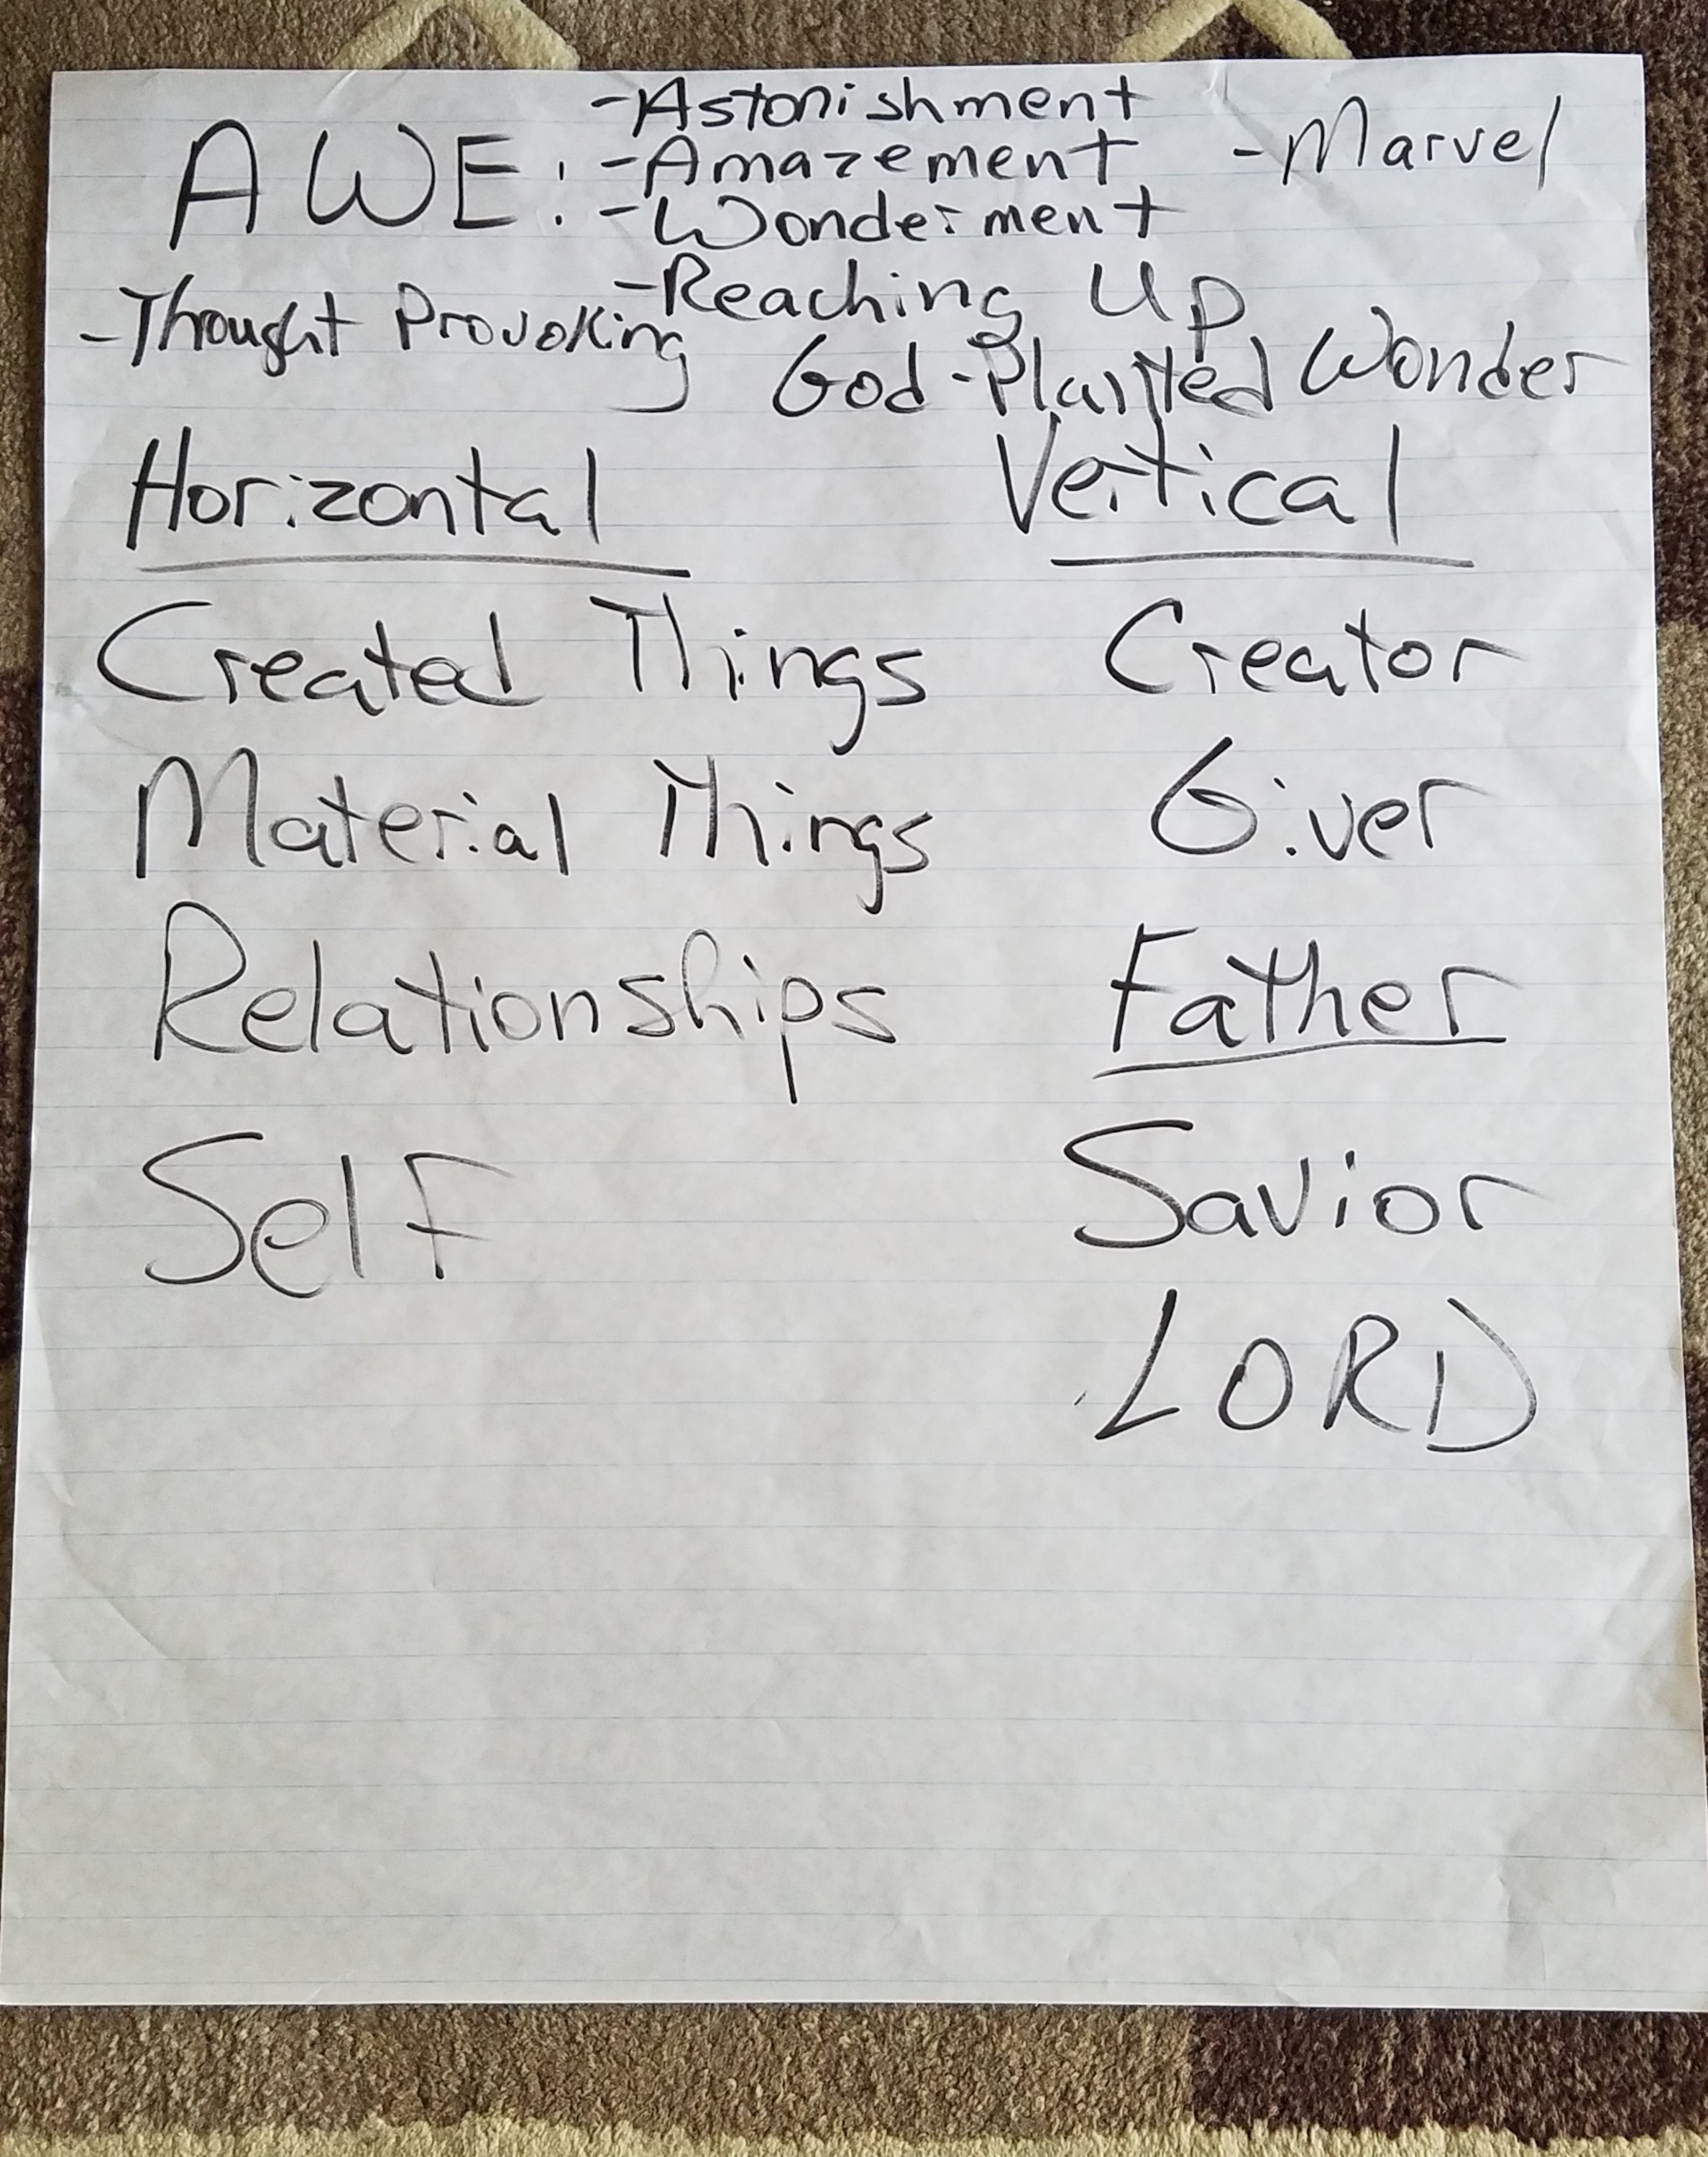 -Astonishment
AWE: -Amazement -Marvel
-Wonderment
-Reaching Up
-Thought Provoking
God-Planted Wonder
Horizontal Vertical
Created Things Creator
Material Things Giver
Relationships Father
Self Savior
LORD